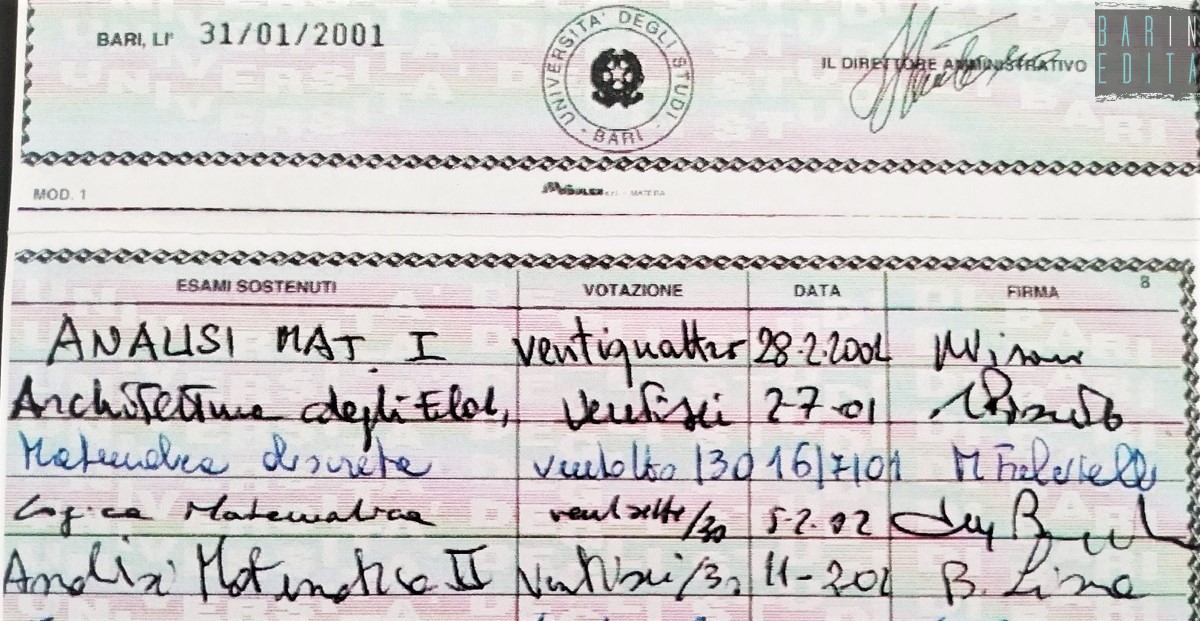 BARI, LI' 31/01/2001
UNIVERSITA' DEGLI STUDI - BARI -
IL DIRETTORE AMMINISTRATIVO
BARIN
EDITA
MOD. 1
MATERA
8
ESAMI SOSTENUTI VOTAZIONE DATA FIRMA
ANALISI MAT I ventiquattro 28.2.2001
Architettura degli Elab, Ventisei 2-7-01
Matematica discreta ventotto/30 16/7/01
Logica Matematica ventisette/30 5-2-02
Analisi Matematica II Ventisei/30 11-202 B.